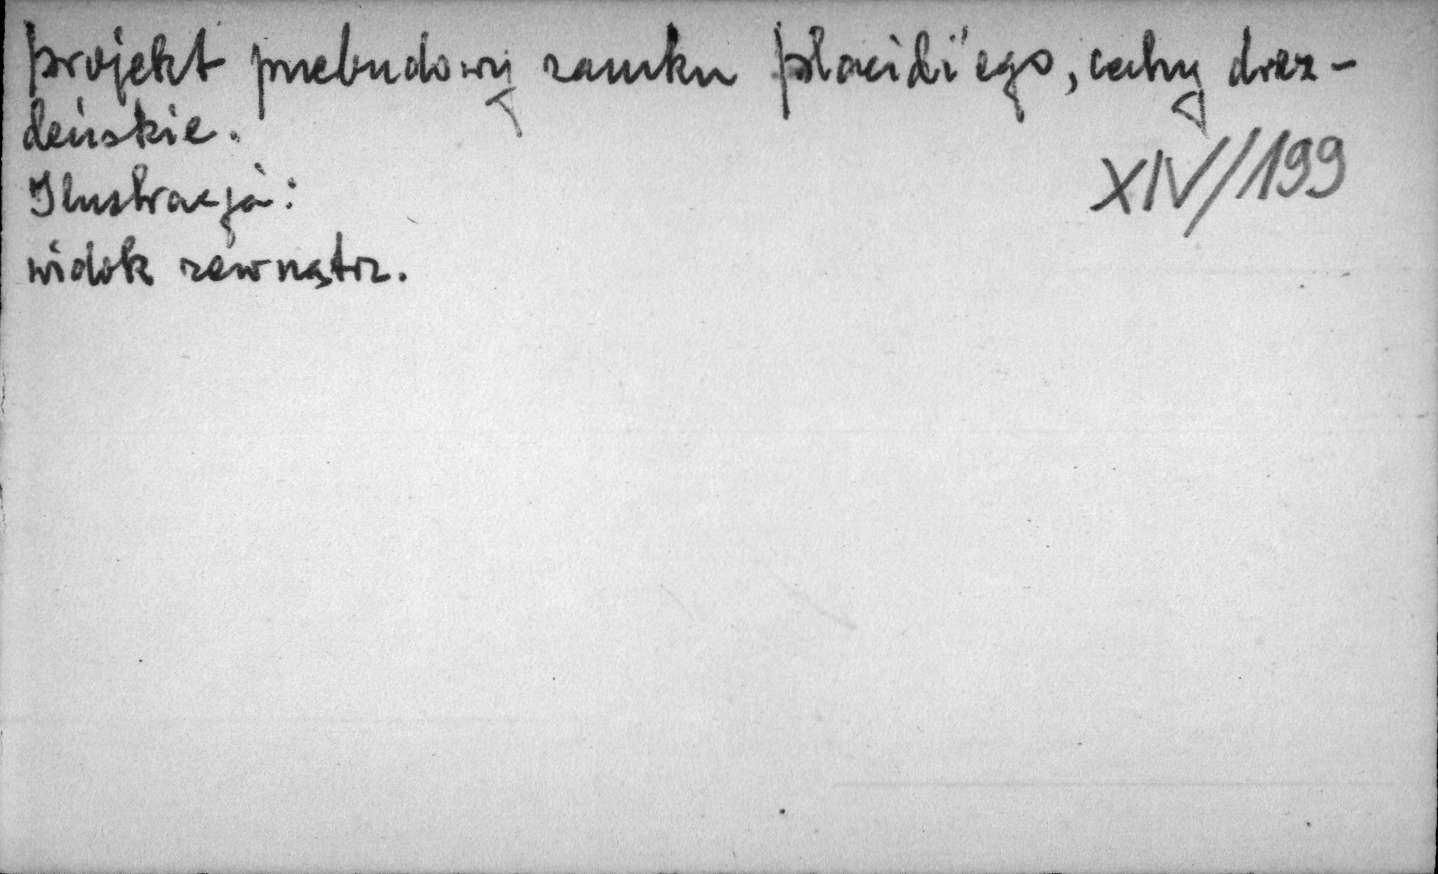 projekt przebudowy zamku Placidi'ego, cechy drez-
deńskie.
XIV/199
Ilustracja:
widok zewnątrz.